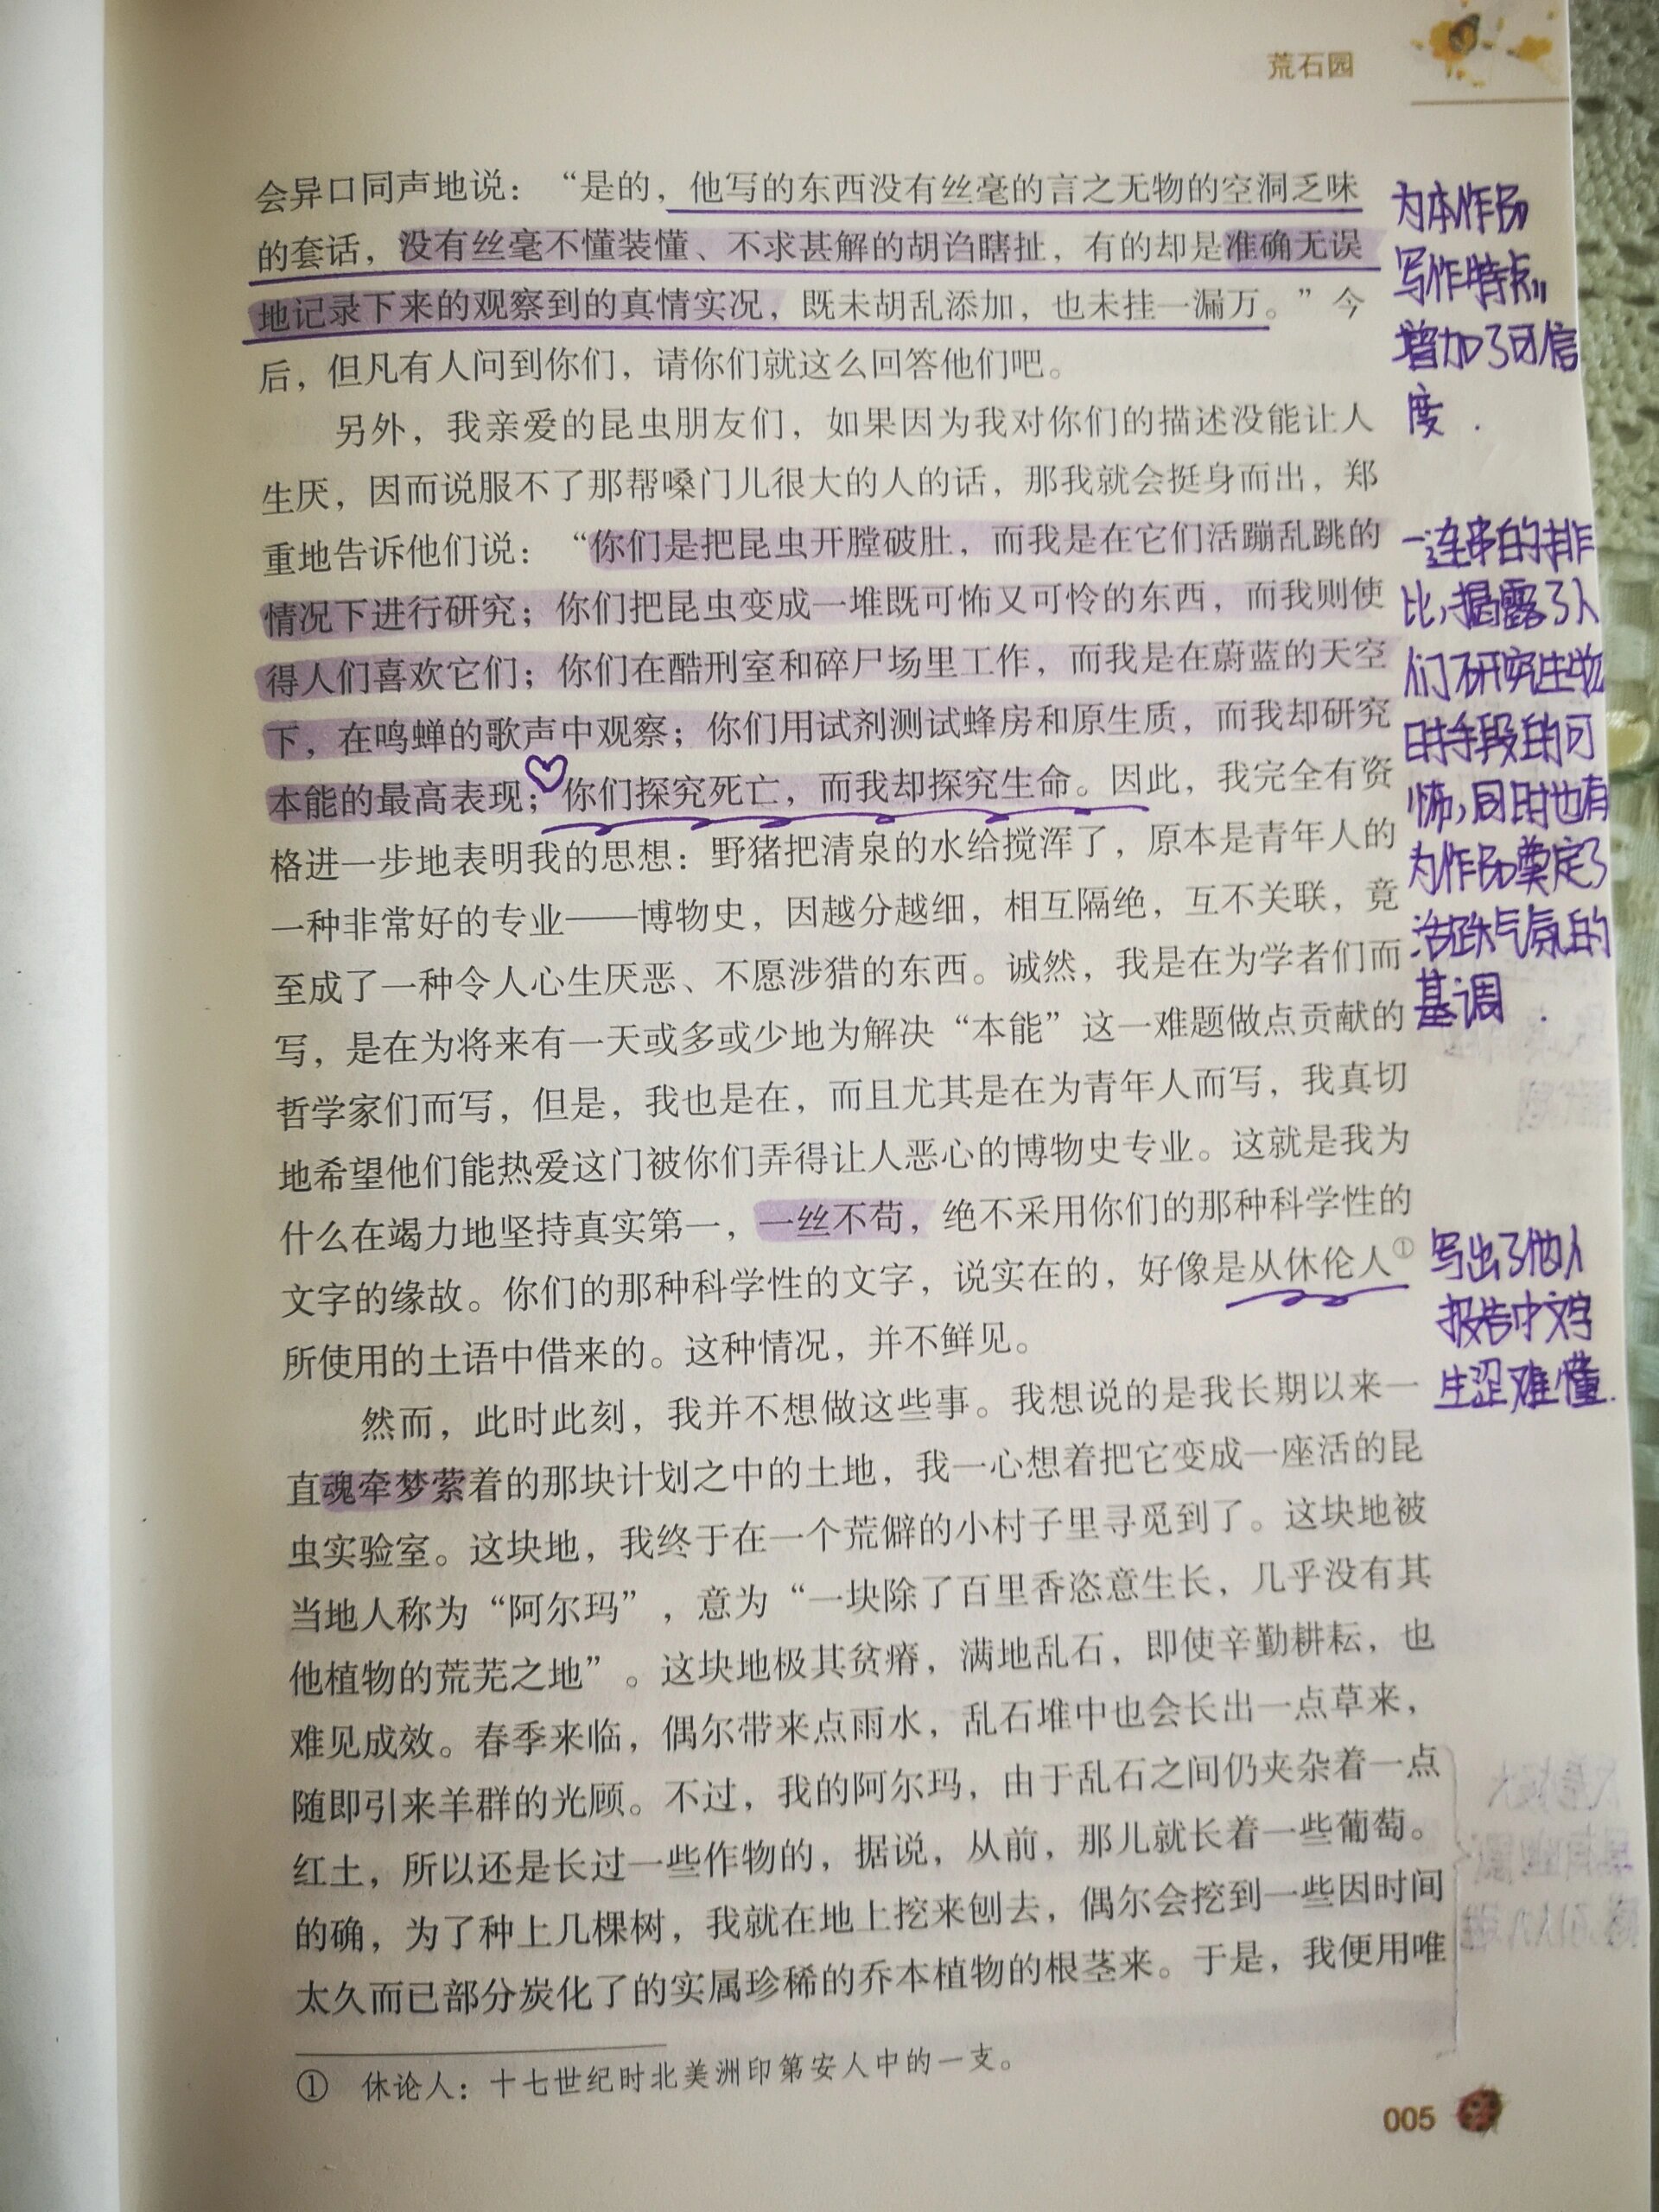 荒石园
会异口同声地说：“是的，他写的东西没有丝毫的言之无物的空洞乏味
的套话，没有丝毫不懂装懂、不求甚解的胡诌瞎扯，有的却是准确无误
地记录下来的观察到的真情实况，既未胡乱添加，也未挂一漏万。”今
后，但凡有人问到你们，请你们就这么回答他们吧。
另外，我亲爱的昆虫朋友们，如果因为我对你们的描述没能让人
生厌，因而说服不了那帮嗓门儿很大的人的话，那我就会挺身而出，郑
重地告诉他们说：“你们是把昆虫开膛破肚，而我是在它们活蹦乱跳的
情况下进行研究；你们把昆虫变成一堆既可怖又可怜的东西，而我则使
得人们喜欢它们；你们在酷刑室和碎尸场里工作，而我是在蔚蓝的天空
下，在鸣蝉的歌声中观察；你们用试剂测试蜂房和原生质，而我却研究
本能的最高表现；你们探究死亡，而我却探究生命。因此，我完全有资
格进一步地表明我的思想：野猪把清泉的水给搅浑了，原本是青年人的
一种非常好的专业——博物史，因越分越细，相互隔绝，互不关联，竟
至成了一种令人心生厌恶、不愿涉猎的东西。诚然，我是在为学者们而
写，是在为将来有一天或多或少地为解决“本能”这一难题做点贡献的
哲学家们而写，但是，我也是在，而且尤其是在为青年人而写，我真切
地希望他们能热爱这门被你们弄得让人恶心的博物史专业。这就是我为
什么在竭力地坚持真实第一，一丝不苟，绝不采用你们的那种科学性的
文字的缘故。你们的那种科学性的文字，说实在的，好像是从休伦人①
所使用的土语中借来的。这种情况，并不鲜见。
然而，此时此刻，我并不想做这些事。我想说的是我长期以来一
直魂牵梦萦着的那块计划之中的土地，我一心想着把它变成一座活的昆
虫实验室。这块地，我终于在一个荒僻的小村子里寻觅到了。这块地被
当地人称为“阿尔玛”，意为“一块除了百里香恣意生长，几乎没有其
他植物的荒芜之地”。这块地极其贫瘠，满地乱石，即使辛勤耕耘，也
难见成效。春季来临，偶尔带来点雨水，乱石堆中也会长出一点草来，
随即引来羊群的光顾。不过，我的阿尔玛，由于乱石之间仍夹杂着一点
红土，所以还是长过一些作物的，据说，从前，那儿就长着一些葡萄。
的确，为了种上几棵树，我就在地上挖来刨去，偶尔会挖到一些因时间
太久而已部分炭化了的实属珍稀的乔本植物的根茎来。于是，我便用唯
① 休论人：十七世纪时北美洲印第安人中的一支。
005
为本作品
写作特点，
增加了可信
度．
一连串的排
比，揭露了人
们研究生物
时手段的可
怖，同时也有
为作品奠定了
活跃气氛的
基调．
写出了他人
报告中文字
生涩难懂．